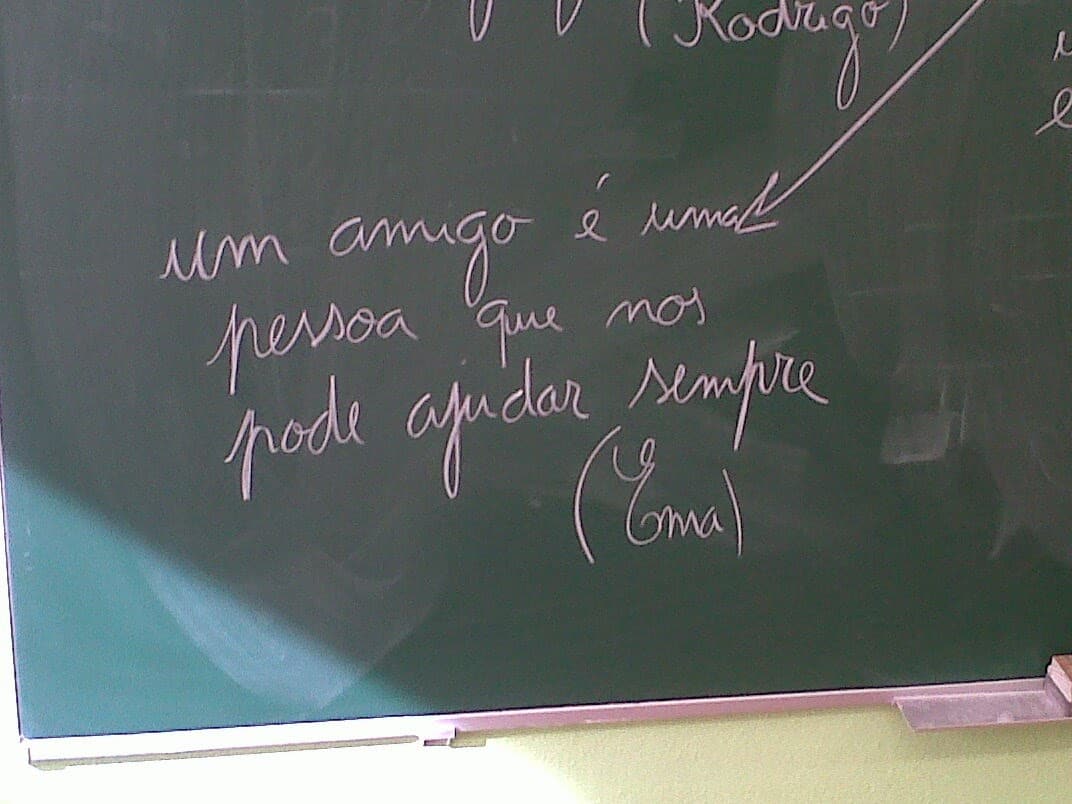 (Rodrigo)
um amigo é uma
pessoa que nos
pode ajudar sempre
(Ema)